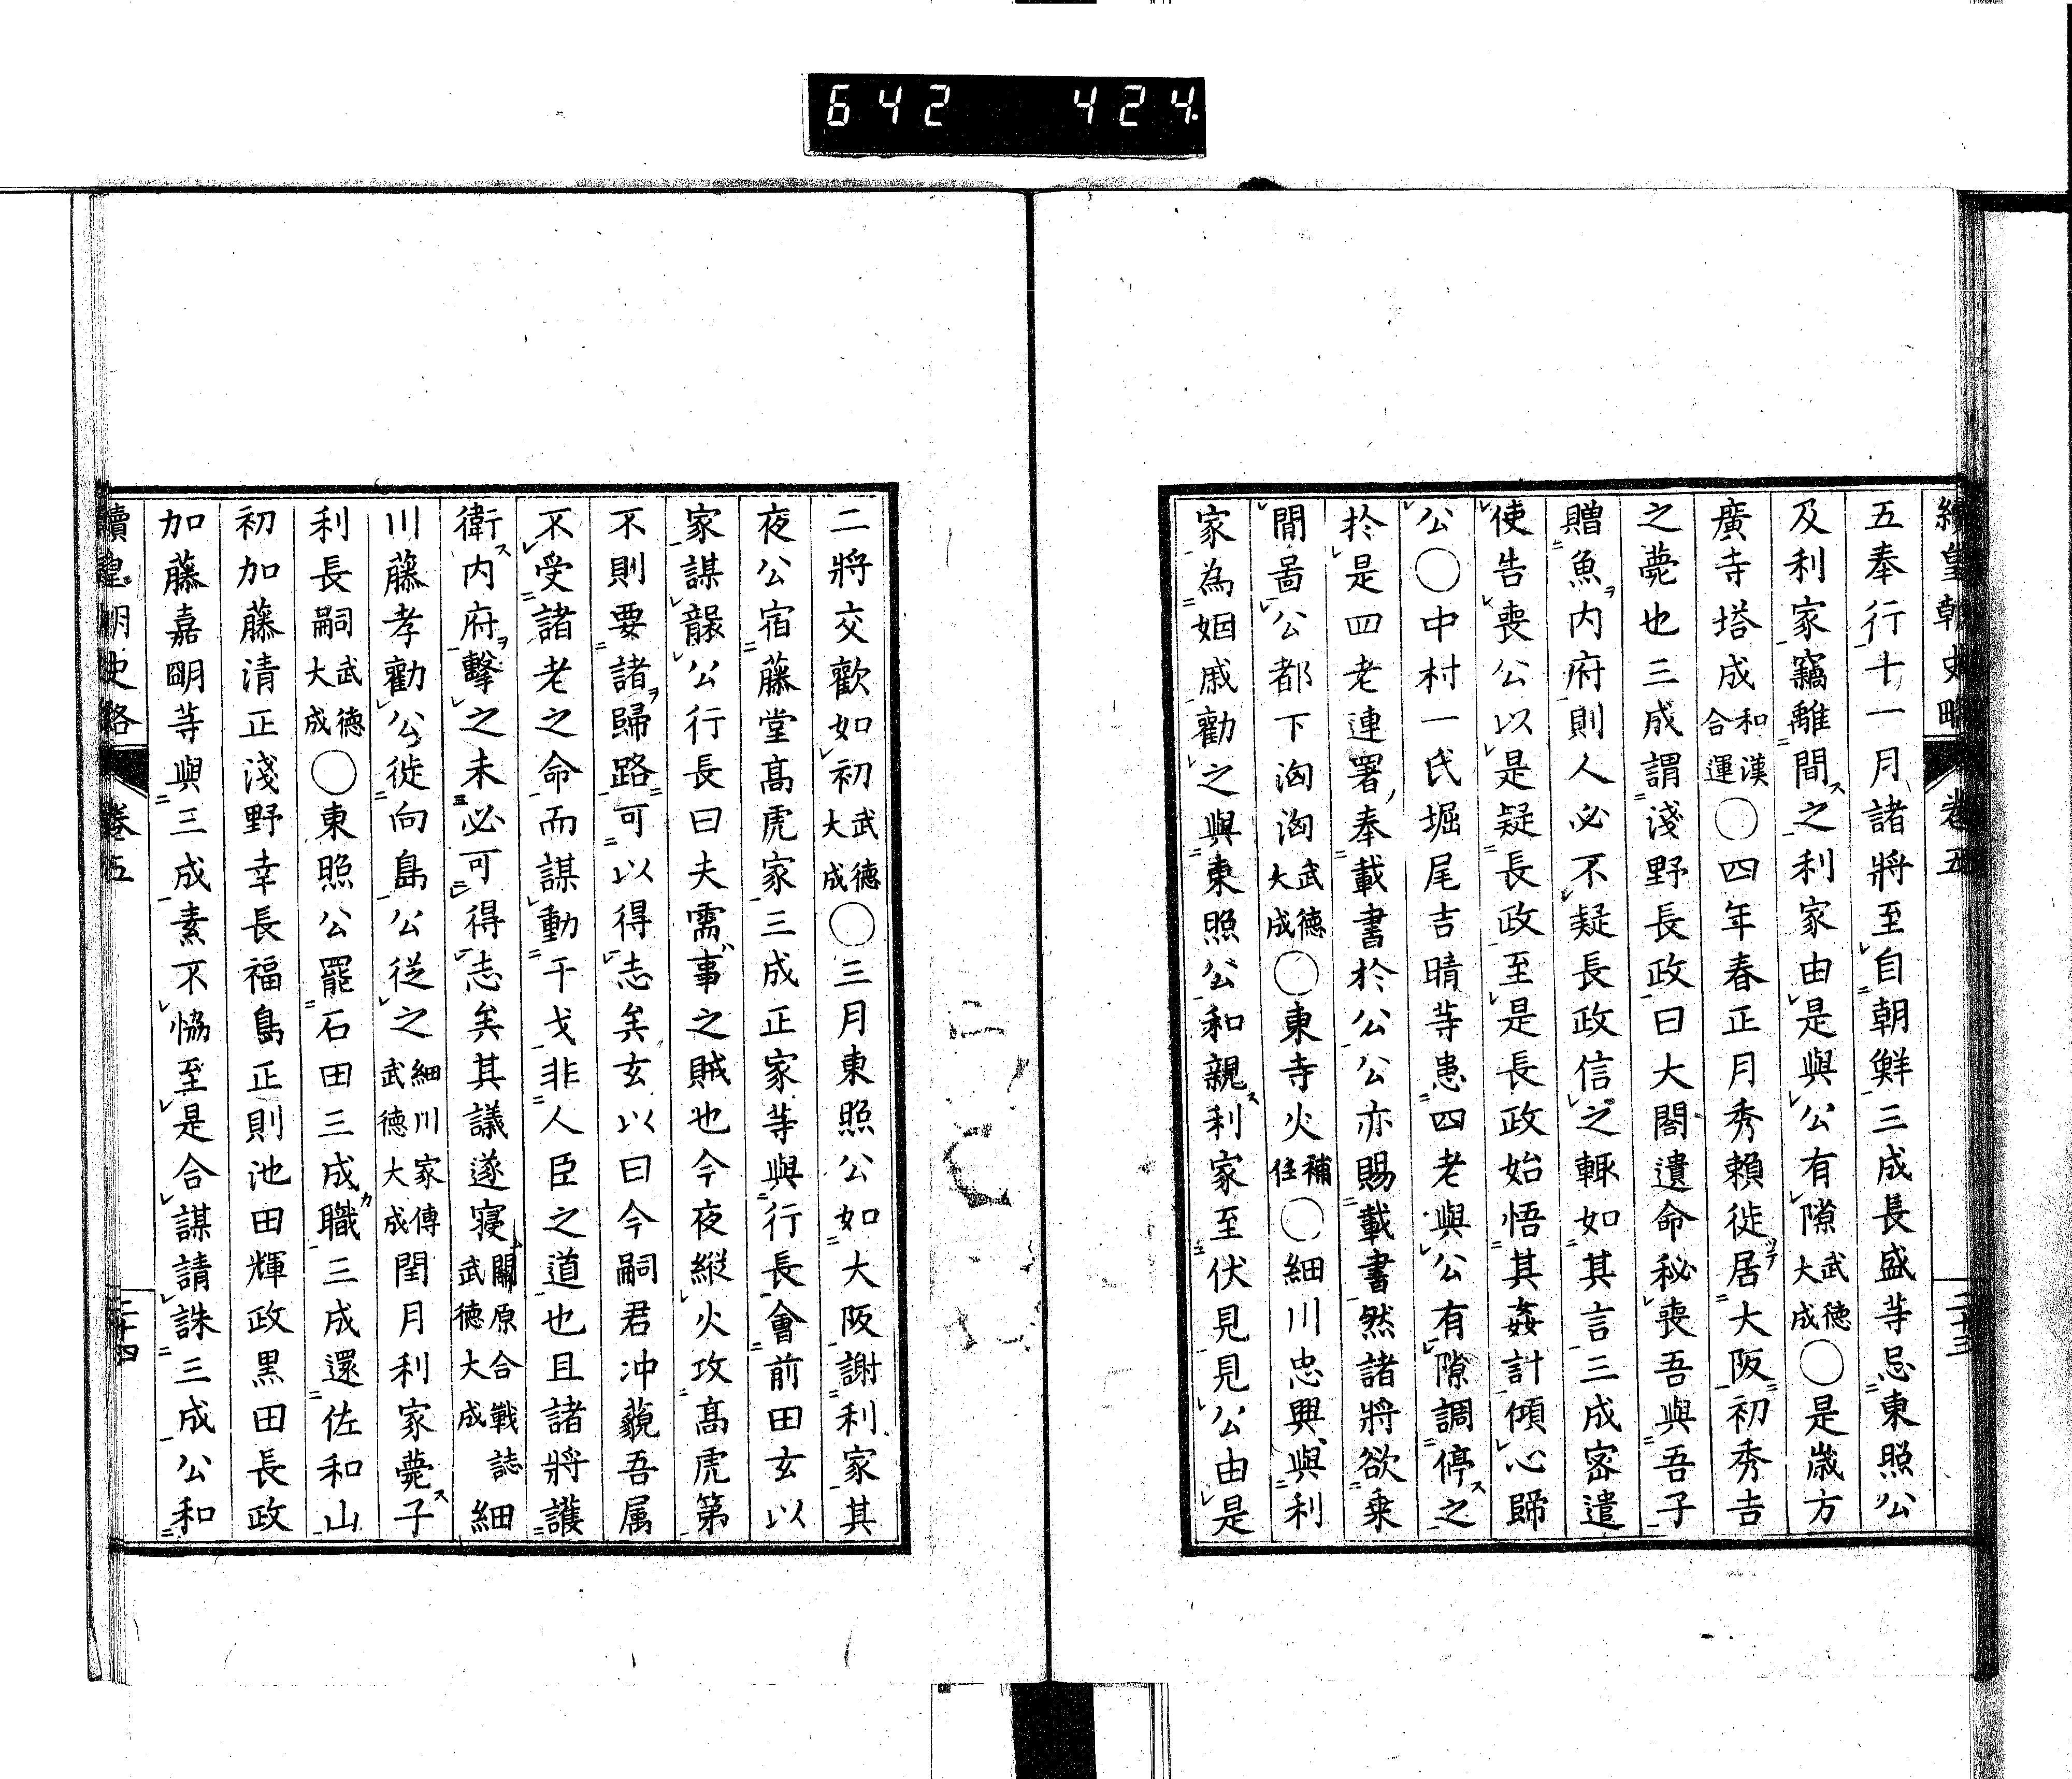 642 424
續皇朝史略 卷五 二十三
五奉行十一月諸將至自朝鮮三成長盛等忌東照公
及利家竊離間之利家由是與公有隙武德大成○是歲方
廣寺塔成和漢合運○四年春正月秀賴徙居大阪初秀吉
之薨也三成謂淺野長政曰大閤遺命秘喪吾與吾子
贈魚内府則人必不疑長政信之輙如其言三成密遣
使告喪公以是疑長政至是長政始悟其姦計傾心歸
公○中村一氏堀尾吉晴等患四老與公有隙調停之
於是四老連署奉載書於公公亦賜載書然諸將欲乘
間啚公都下洶洶武德大成○東寺火補任○細川忠興與利
家為姻戚勸之與東照公和親利家至伏見見公由是
二將交歡如初武德大成○三月東照公如大阪謝利家其
夜公宿藤堂高虎家三成正家等與行長會前田玄以
家謀襲公行長曰夫需事之賊也今夜縱火攻高虎第
不則要諸歸路可以得志矣玄以曰今嗣君冲藐吾属
不受諸老之命而謀動干戈非人臣之道也且諸將護
衛内府擊之未必可得志矣其議遂寝關原合戰誌武德大成細
川藤孝勸公徙向島公從之細川家傳武德大成閏月利家薨子
利長嗣武德大成○東照公罷石田三成職三成還佐和山
初加藤清正淺野幸長福島正則池田輝政黒田長政
加藤嘉明等與三成素不恊至是合謀請誅三成公和
續皇朝史略 卷五 二十四